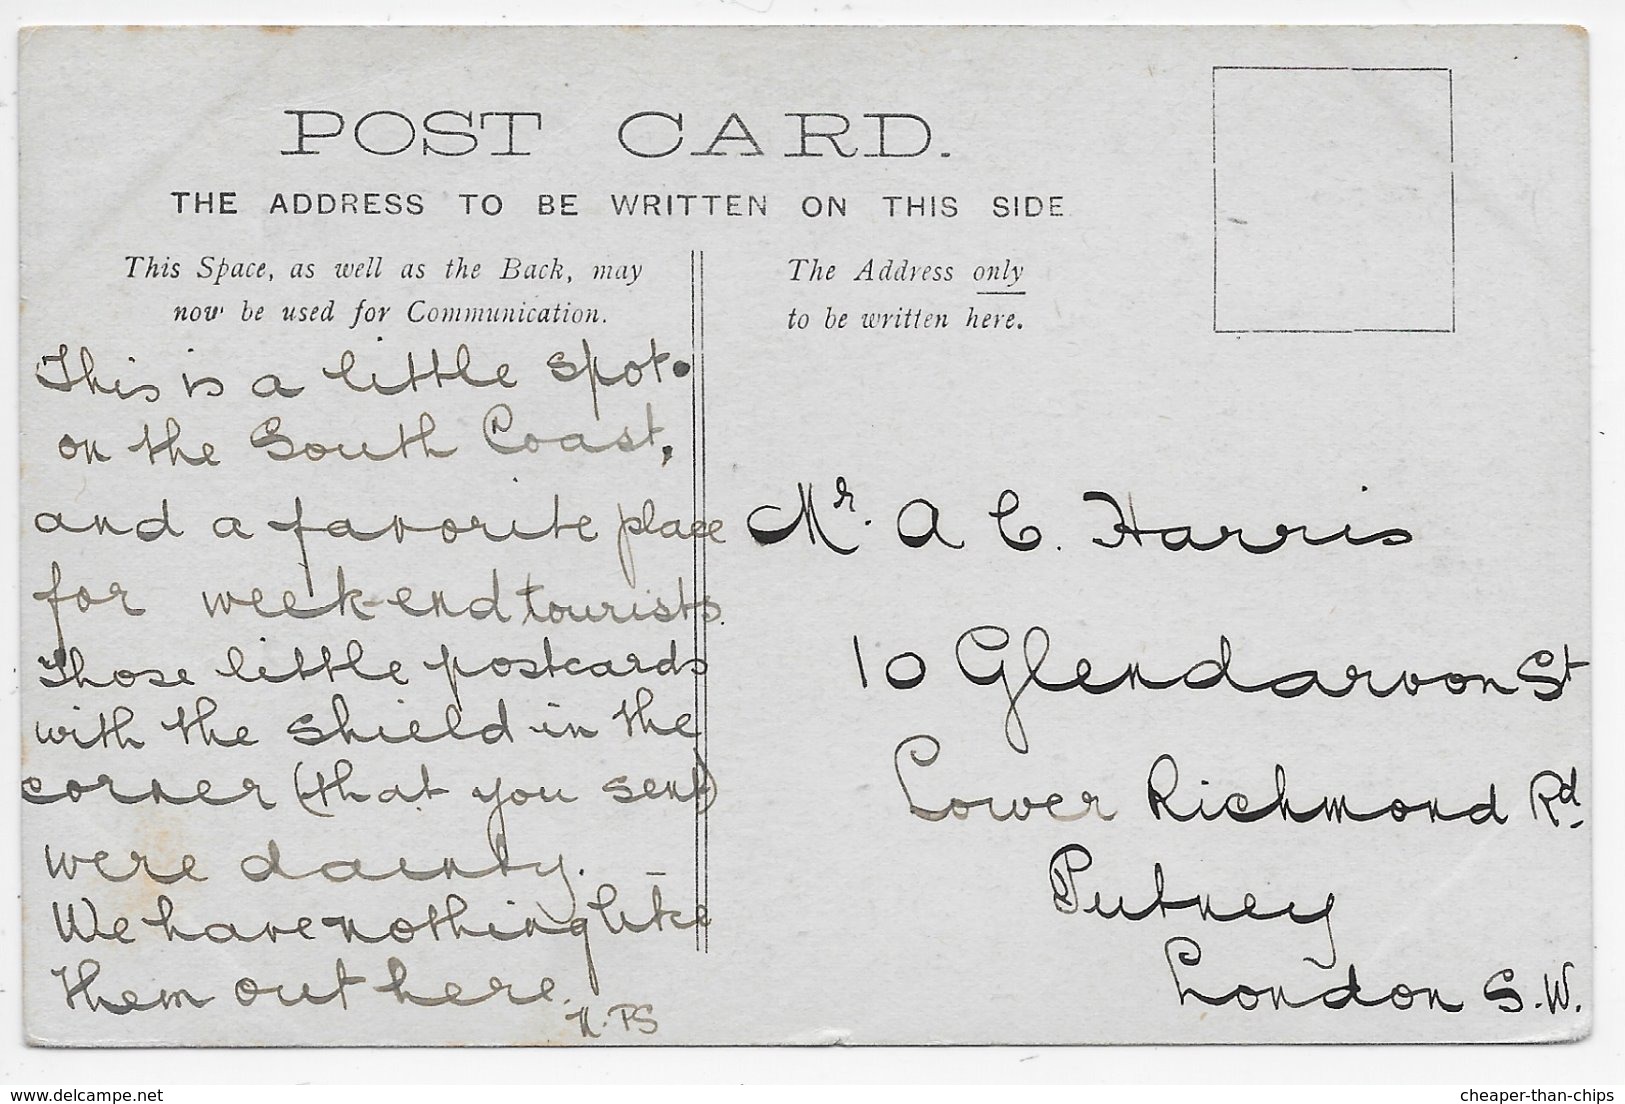 POST CARD.
THE ADDRESS TO BE WRITTEN ON THIS SIDE
This Space, as well as the Back, may
now be used for Communication.
The Address only
to be written here.
This is a little spot.
on the South Coast,
and a favorite place
for week-end tourists.
Those little postcards
with the shield in the
corner (that you sent)
were dainty. —
We have nothing like
them out here.
N. PS
Mr. A C. Harris
10 Glendarvon St
Lower Richmond Rd.
Putney
London S.W.
www.delcampe.net
cheaper-than-chips